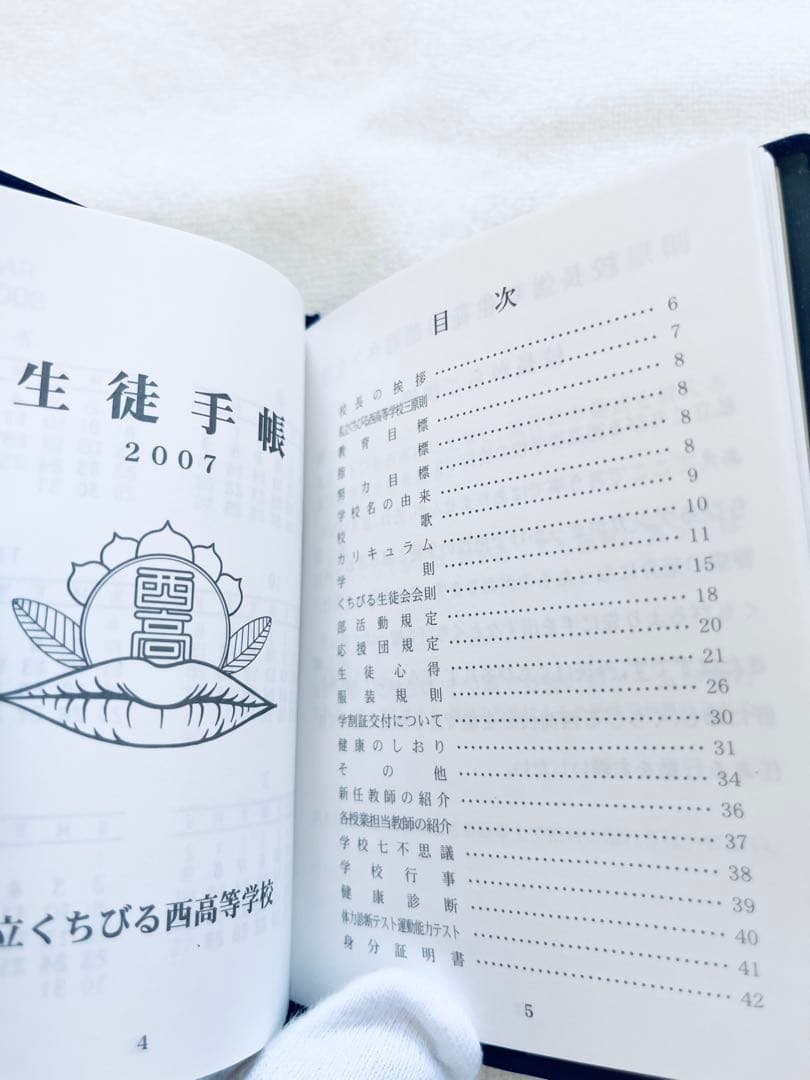 生徒手帳
2007
西高
立くちびる西高等学校
4
目次
校長の挨拶 6
私立くちびる西高等学校三原則 7
教育目標 8
指標 8
努力目標 8
学校名の由来 8
校歌 9
カリキュラム 10
学則 11
くちびる生徒会会則 15
部活動規定 18
応援団規定 20
生徒心得 21
服装規則 26
学割証交付について 30
健康のしおり 31
その他 34
新任教師の紹介 36
各授業担当教師の紹介 37
学校七不思議 38
学校行事 39
健康診断 40
体力診断テスト運動能力テスト 41
身分証明書 42
5